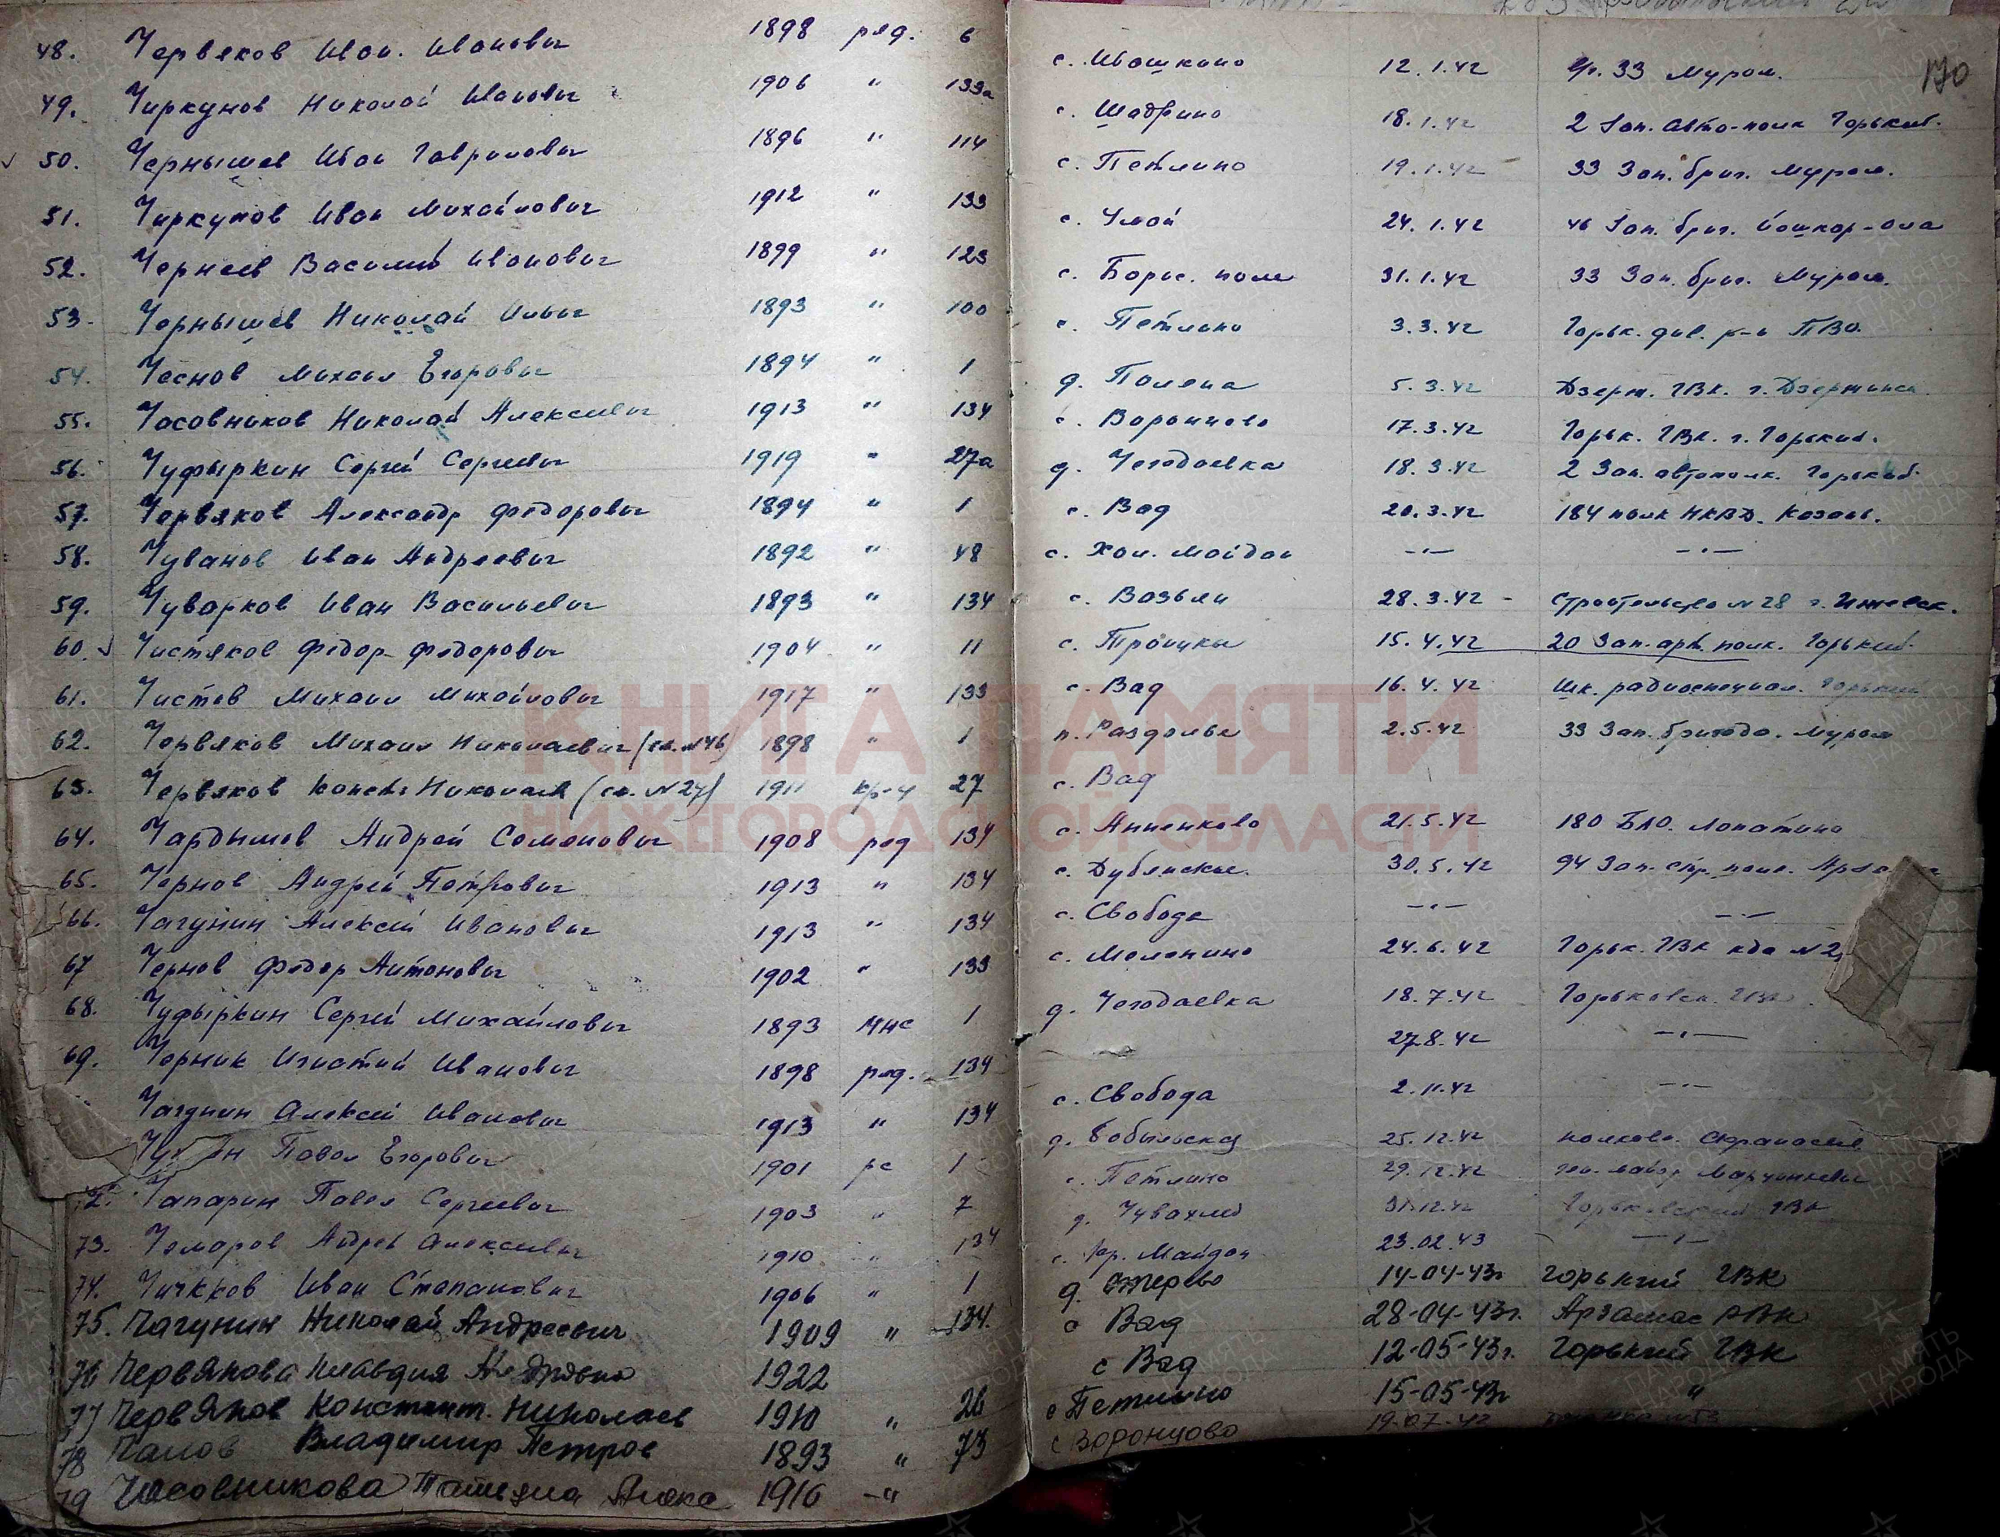 170
48. Червяков Иван. Иванович 1898 ряд. 6 с. Ивашкино 12.1.42 Бр. 33 Муром.
49. Чиркунов Николай Иванович 1906 " 133а с. Шадрино 18.1.42 2 Зап. авто-полк Горький.
50. Чернышев Иван Гаврилович 1896 " 114 с. Петлино 19.1.42 33 Зап. бриг. Муром.
51. Чиркунов Иван Михайлович 1912 " 133 с. Умай 24.1.42 46 Зап. бриг. Йошкар-Ола
52. Чернеев Василий Иванович 1899 " 123 с. Борис. поле 31.1.42 33 Зап. бриг. Муром.
53. Чернышев Николай Ильич 1893 " 100 с. Петлино 3.3.42 Горьк. див. р-н ПВО.
54. Чеснов Михаил Егорович 1894 " 1 д. Поляна 5.3.42 Дзерж. ГВК. г. Дзержинск
55. Часовников Николай Алексеевич 1913 " 134 с. Воронцово 17.3.42 Горьк. ГВК. г. Горький.
56. Чуфыркин Сергей Сергеевич 1919 " 27а д. Чегодаевка 18.3.42 2 Зап. автополк. Горький.
57. Червяков Александр Федорович 1894 " 1 с. Вад 20.3.42 184 полк НКВД. Казань.
58. Чуванов Иван Андреевич 1892 " 48 с. Хол. Майдан —"— —"—
59. Чуварков Иван Васильевич 1893 " 134 с. Возьян 28.3.42 - строительство №28 г. Ижевск.
60. Чистяков Федор Федорович 1904 " 11 с. Троицкы 15.4.42 20 Зап. арт. полк. Горький.
61. Чистов Михаил Михайлович 1917 " 133 с. Вад 16.4.42 Шк. радиоспециал. Горький
62. Червяков Михаил Николаевич (см. №46) 1898 " 1 п. Раздолье 2.5.42 33 Зап. бригада. Муром
63. Червяков Конст. Николаев (см. №27) 1911 кр-ц 27 с. Вад
64. Чардымов Андрей Семенович 1908 ряд 134 с. Анненково 21.5.42 180 БАО. Лопатино
65. Чернов Андрей Петрович 1913 " 134 с. Дубенское. 30.5.42 94 Зап. стр. полк.
66. Чагунин Алексей Иванович 1913 " 134 с. Свобода —"— —"—
67 Чернов Федор Антонович 1902 " 133 с. Мелянино 24.6.42 Горьк. ГВК кда №2
68. Чуфыркин Сергей Михайлович 1893 мнс 1 д. Чегодаевка 18.7.42 Горьковск. ГВК.
69. Черник Игнатий Иванович 1898 ряд. 134 27.8.42 —"—
Чагунин Алексей Иванович 1913 " 134 с. Свобода 2.11.42 —"—
Павел Егорович 1901 рс 1 д. Бобыльская 25.12.42
72. Чапарин Павел Сергеевич 1903 " 7 с. Петлино 29.12.42 ген. майор
73. Чемаров Андрей Алексеевич 1910 " 134 д. 31.12.42 Горьковский ГВК
74. Чичков Иван Степанович 1906 " 1 с. Кр. Майдан 23.02.43 —"—
75. Чагунин Николай Андреевич 1909 " 134. д. 14-04-43г Горький ГВК
76 Червякова Клавдия 1922 с Вад 28-04-43г. Арзамас РВК
77 Червяков Констант. Николаев 1910 " 26 с Вад 12-05-43г. Горький ГВК
78 Владимир Петров 1893 " 73 с Петлино 15-05-43г "
79 Часовникова Татьяна Алекс 1916 —" с Воронцово 19.07.42
КНИГА ПАМЯТИ
НИЖЕГОРОДСКОЙ ОБЛАСТИ
ПАМЯТЬ НАРОДА